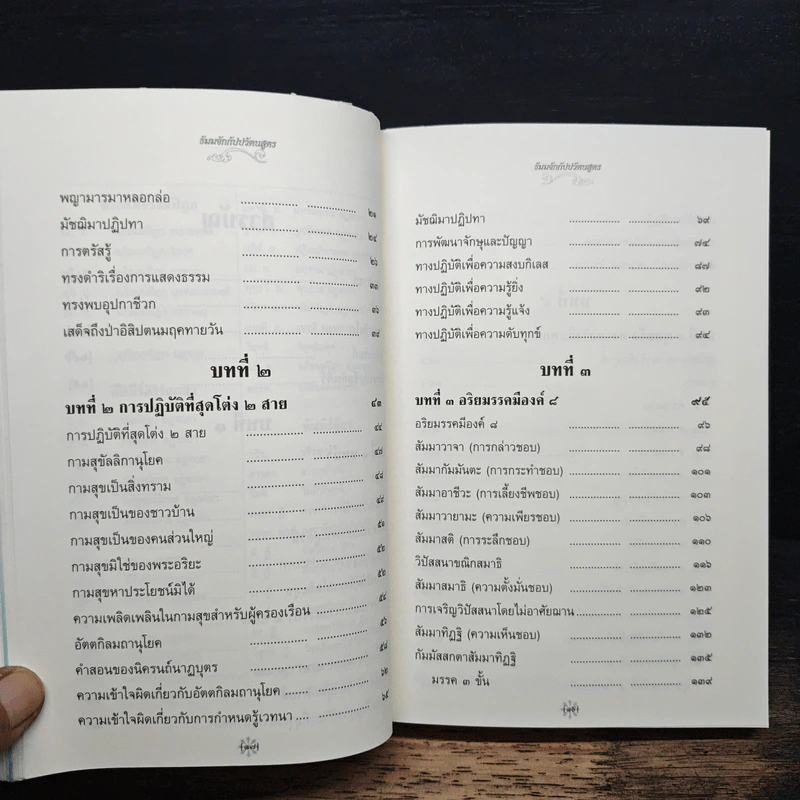 ธัมมจักกัปปวัตนสูตร
พญามารมาหลอกล่อ ๒๑
มัชฌิมาปฏิปทา ๒๔
การตรัสรู้ ๒๖
ทรงดำริเรื่องการแสดงธรรม ๓๓
ทรงพบอุปกาชีวก ๓๖
เสด็จถึงป่าอิสิปตนมฤคทายวัน
บทที่ ๒
บทที่ ๒ การปฏิบัติที่สุดโต่ง ๒ สาย ๔๓
การปฏิบัติที่สุดโต่ง ๒ สาย ๔๔
กามสุขัลลิกานุโยค
กามสุขเป็นสิ่งทราม
กามสุขเป็นของชาวบ้าน
กามสุขเป็นของคนส่วนใหญ่ ๕๑
กามสุขมิใช่ของพระอริยะ ๕๒
กามสุขหาประโยชน์มิได้ ๕๒
ความเพลิดเพลินในกามสุขสำหรับผู้ครองเรือน ๕๔
อัตตกิลมถานุโยค ๕๖
คำสอนของนิครนถ์นาฏบุตร ๕๘
ความเข้าใจผิดเกี่ยวกับอัตตกิลมถานุโยค ๖๒
ความเข้าใจผิดเกี่ยวกับการกำหนดรู้เวทนา ๖๕
ธัมมจักกัปปวัตนสูตร
มัชฌิมาปฏิปทา ๖๙
การพัฒนาจักษุและปัญญา ๗๔
ทางปฏิบัติเพื่อความสงบกิเลส ๘๗
ทางปฏิบัติเพื่อความรู้ยิ่ง ๙๒
ทางปฏิบัติเพื่อความรู้แจ้ง ๙๓
ทางปฏิบัติเพื่อความดับทุกข์ ๙๔
บทที่ ๓
บทที่ ๓ อริยมรรคมีองค์ ๘ ๙๕
อริยมรรคมีองค์ ๘ ๙๖
สัมมาวาจา (การกล่าวชอบ) ๙๘
สัมมากัมมันตะ (การกระทำชอบ) ๑๐๑
สัมมาอาชีวะ (การเลี้ยงชีพชอบ) ๑๐๓
สัมมาวายามะ (ความเพียรชอบ) ๑๐๖
สัมมาสติ (การระลึกชอบ) ๑๑๐
วิปัสสนาขณิกสมาธิ ๑๑๖
สัมมาสมาธิ (ความตั้งมั่นชอบ) ๑๒๓
การเจริญวิปัสสนาโดยไม่อาศัยฌาน ๑๒๕
สัมมาทิฏฐิ (ความเห็นชอบ) ๑๓๒
กัมมัสสกตาสัมมาทิฏฐิ ๑๓๕
มรรค ๓ ขั้น ๑๓๙